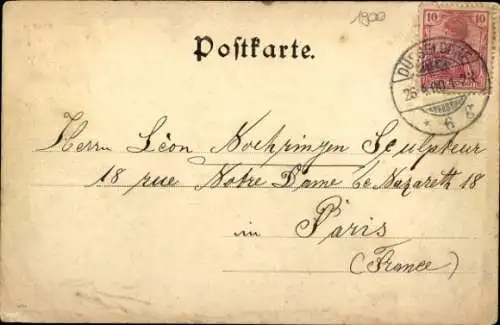 1900
Postkarte.
10
DÜSSELDORF
Herrn Léon Noehringen Sculpteur
18 rue Notre Dame de Nazareth 18
in Paris
(France)